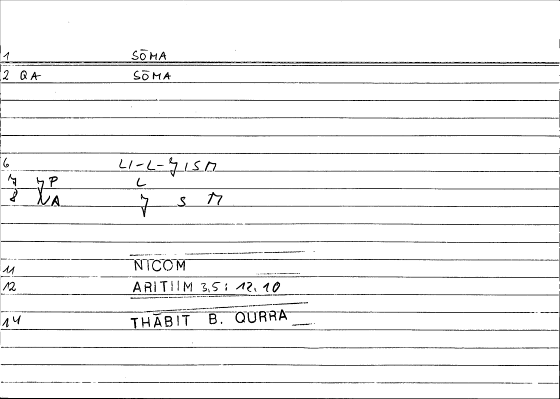 1 SŌMA
2 QA SŌMA
6 LI-L-ʒISM
7 ʒP L
8 NA ʒ S M
11 NICOM
12 ARITIIM 3,5: 12,10
14 THĀBIT B. QURRA